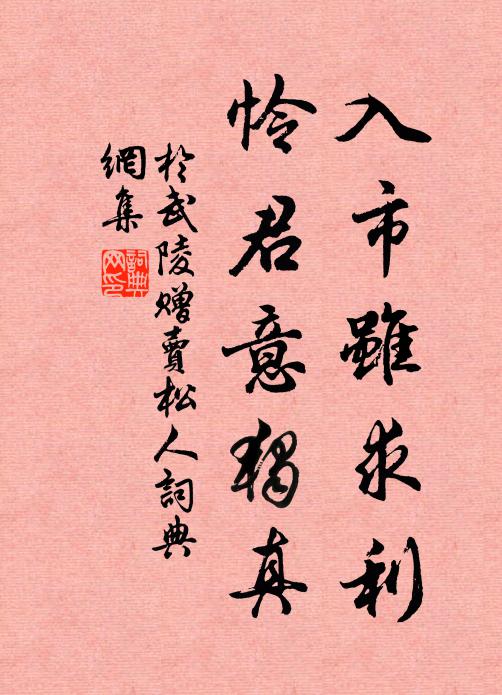 入市雖求利
怜君意獨真
於武陵贈賣松人詞典
網集
詞典
网印